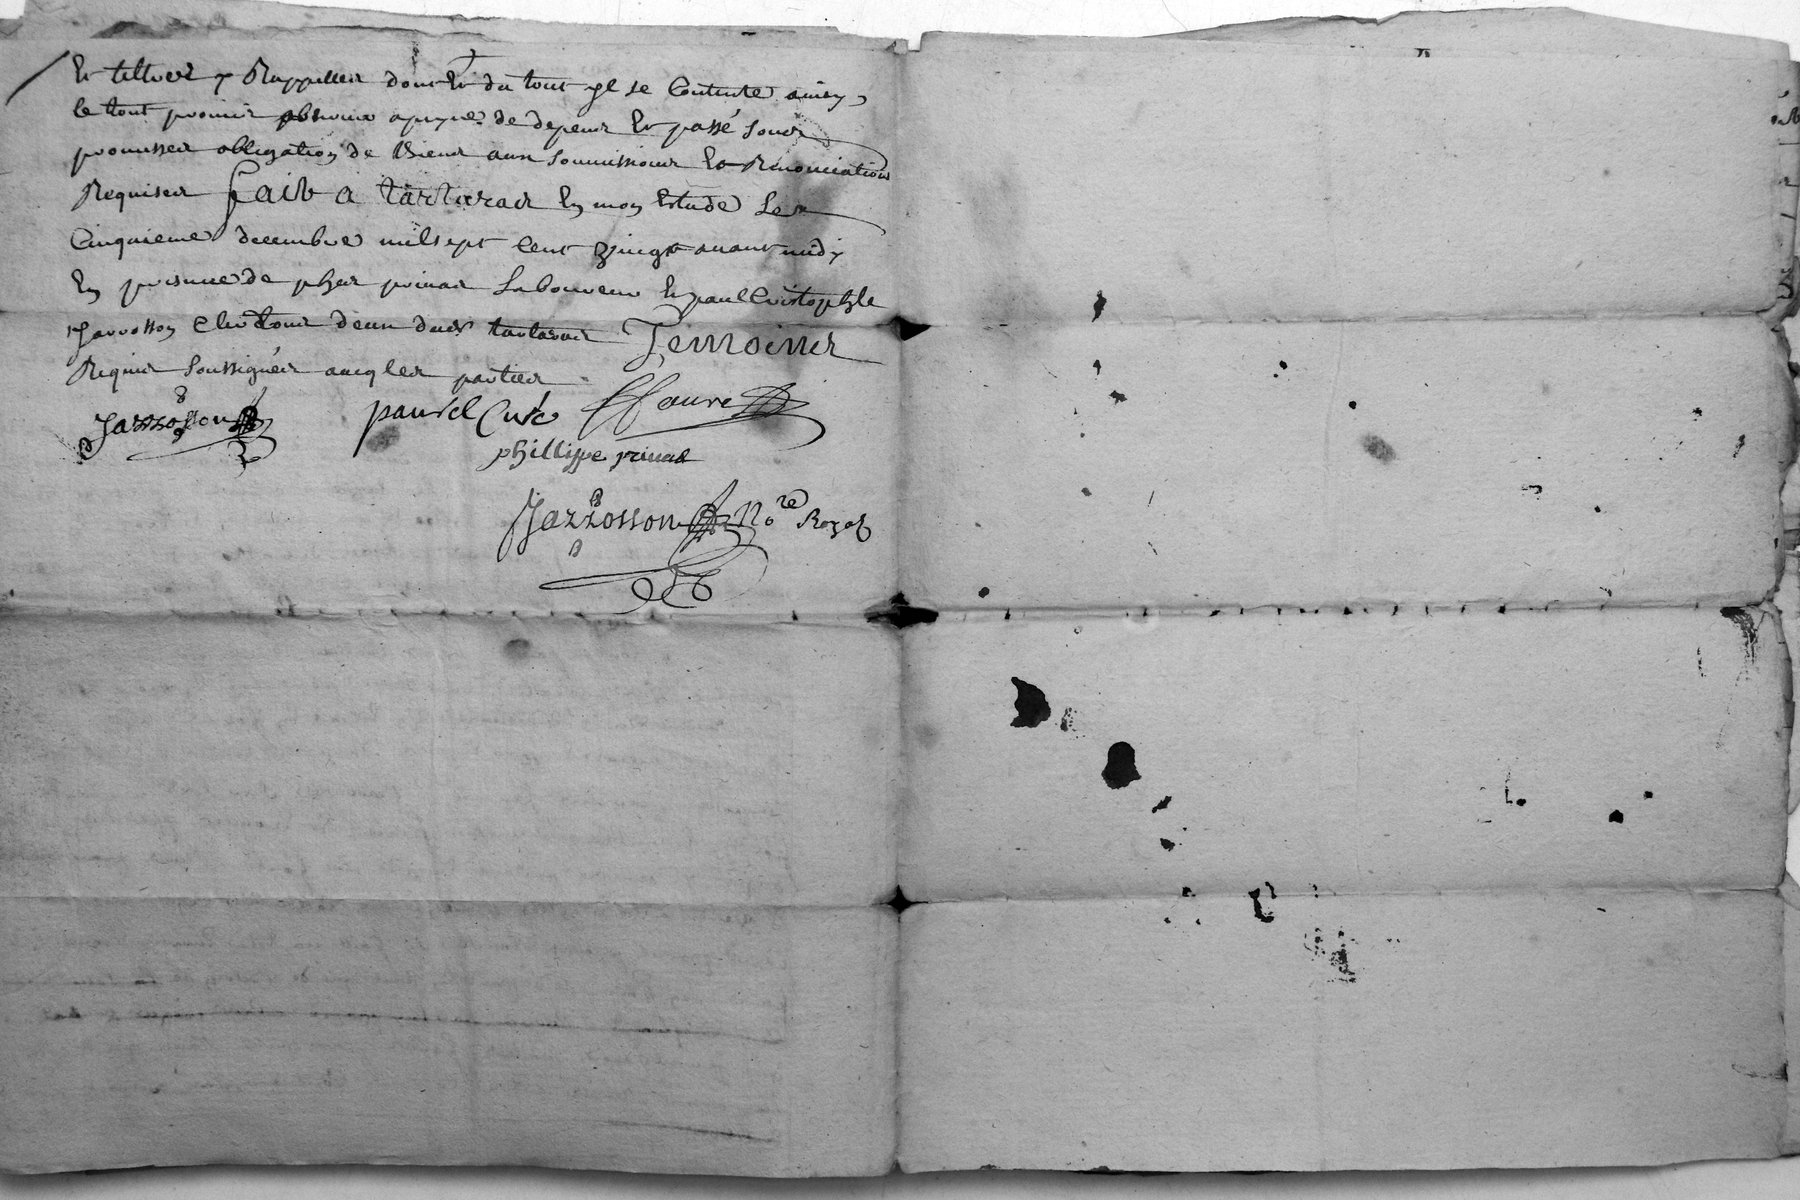 Et tiltres y Rappellés dont Et du tout yl se Contente ainsy
le tout promis observer a peyne de depens Et passé sous
promesses obligation de Biens aux soumissions Et Renonciations
Requises fait a tartaras En mon Estude Le
Cinquieme decembre mil sept cent vingt avant midy
En presence de phes prinas Laboureur Et paul Cristophle
Jarrosson clerc tous deux dud tartaras Temoins
Requis soussignés avec les parties
Jarrosson paurel Curé ffaure
phillippe prinas
Jarrosson No re Royal